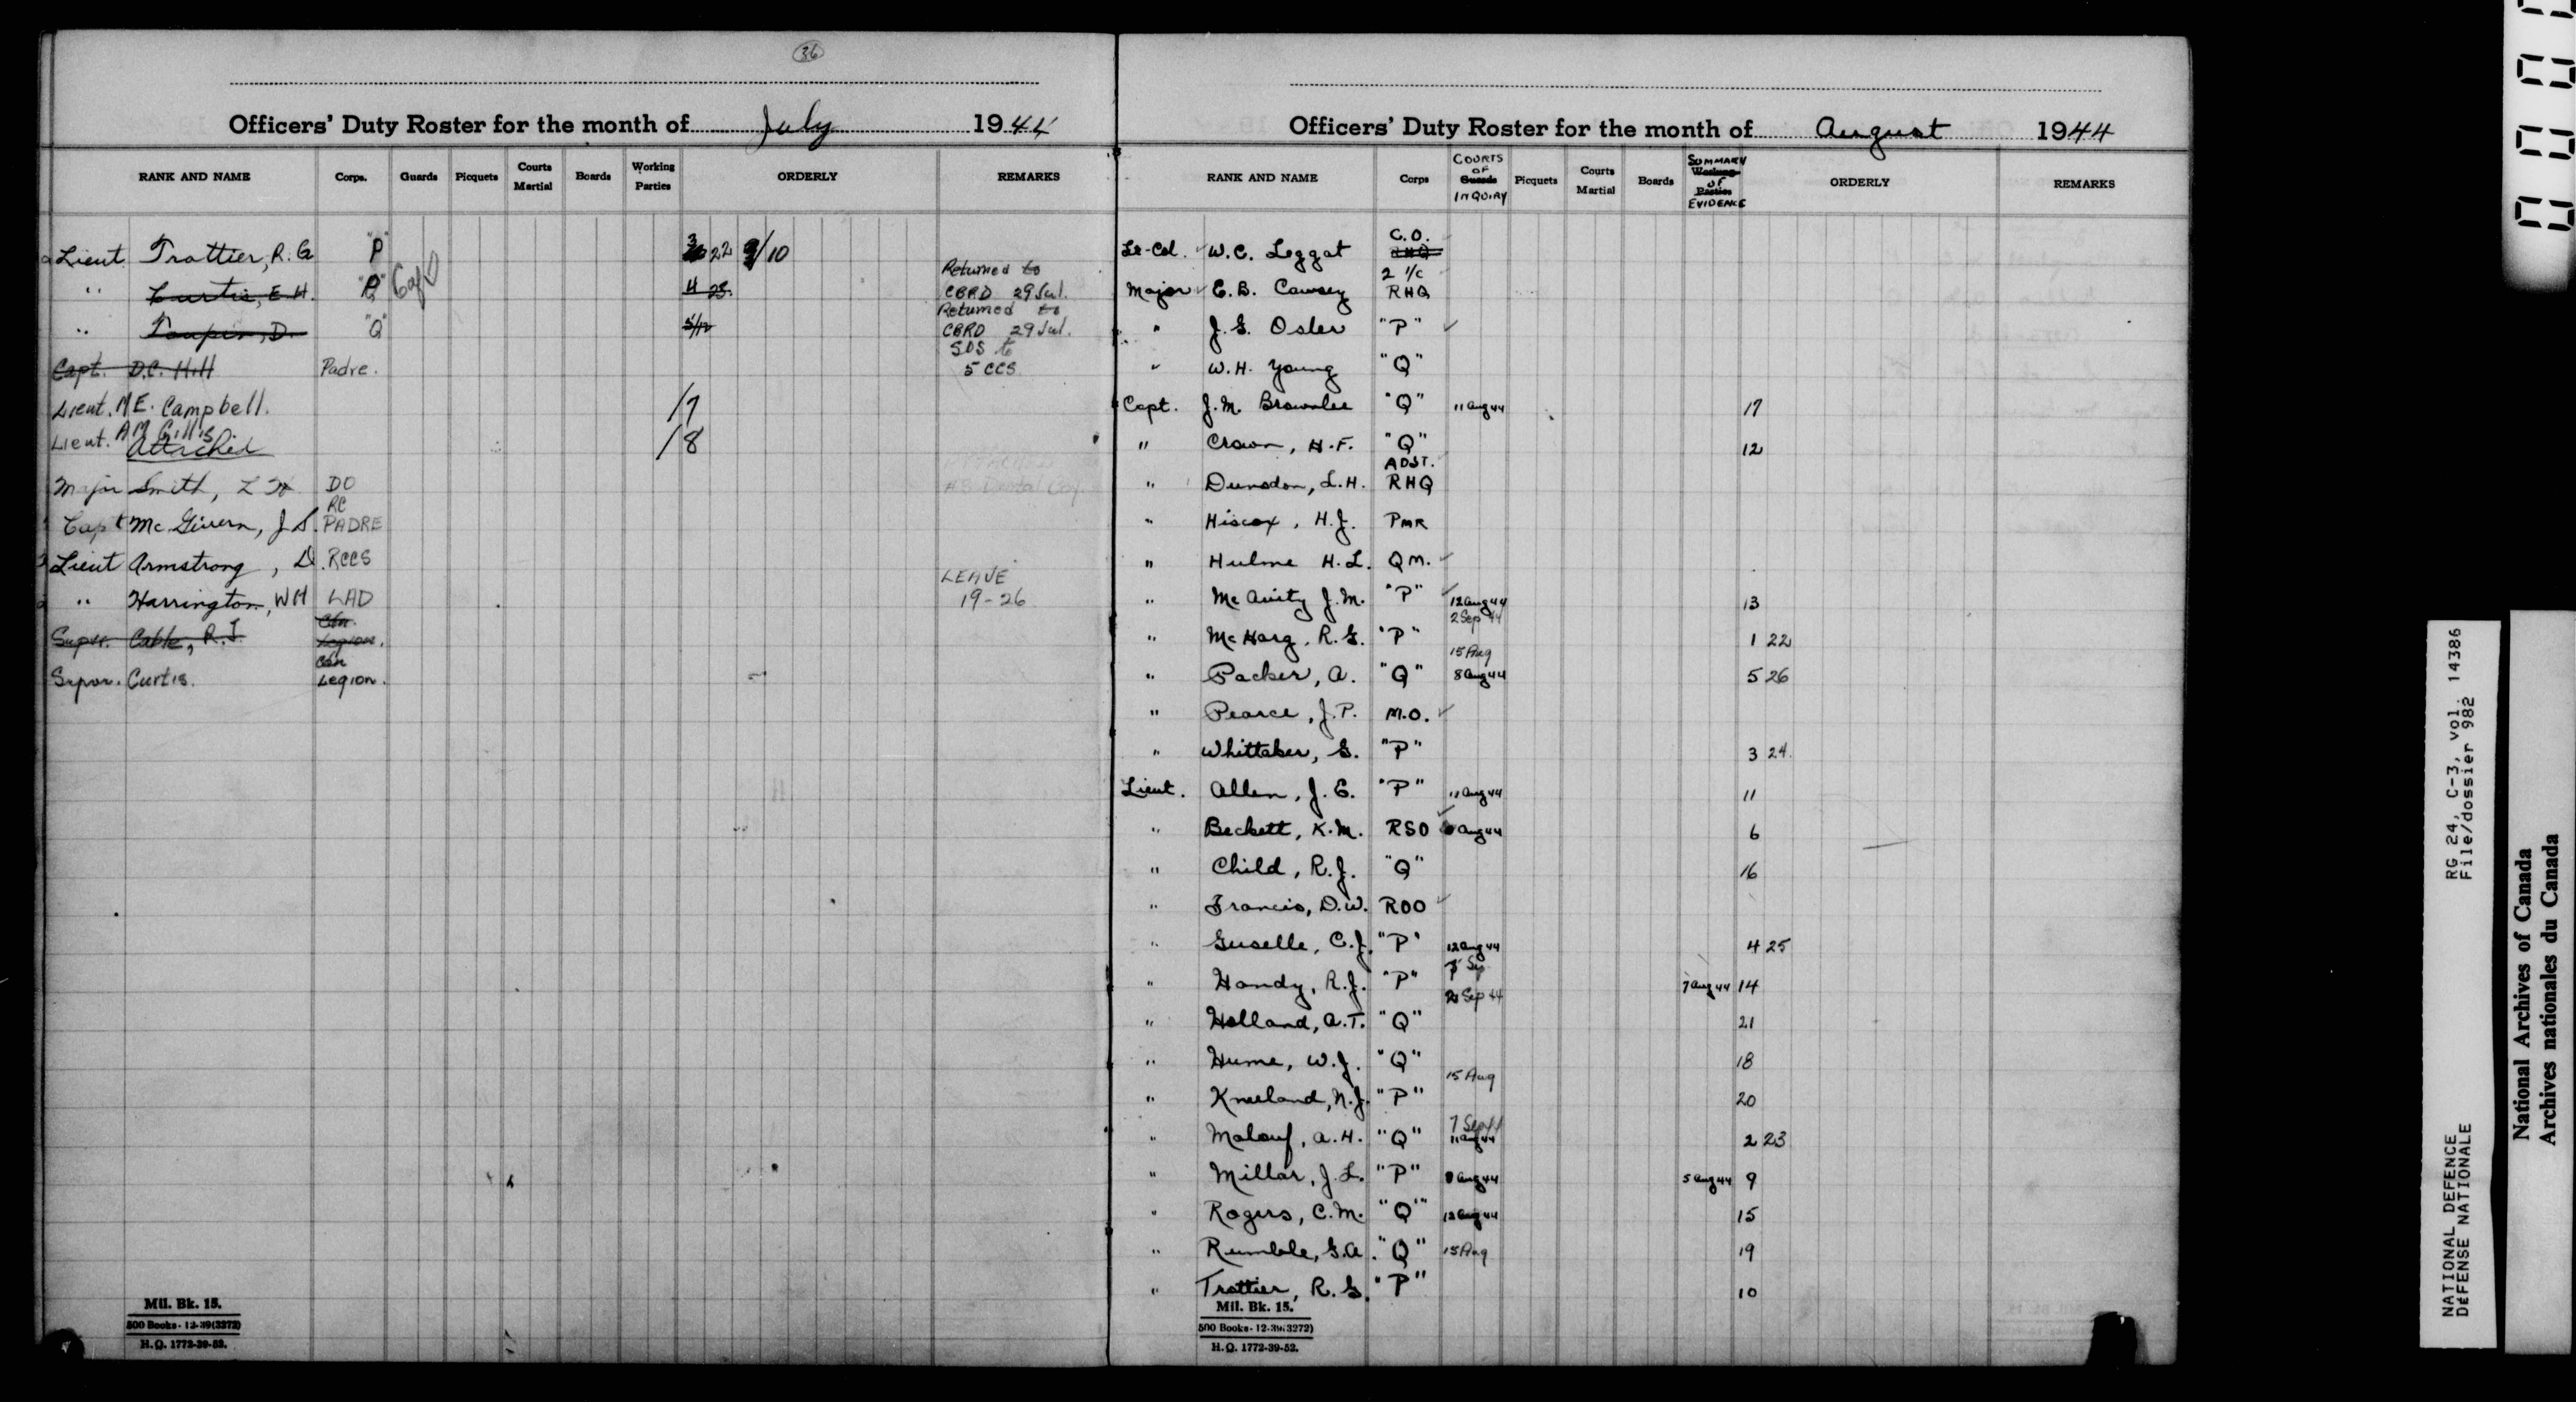 36
Officers' Duty Roster for the month of July 1944
RANK AND NAME Corps. Guards Picquets Courts Martial Boards Working Parties ORDERLY REMARKS
Lieut Trottier, R. G "P" 22 9/10
" Curtis, E H. 11 25. Returned to CBRD 29 Jul.
" Toupin, D. "Q" 5/12 Returned to CBRD 29 Jul.
Capt. D.C. Hill Padre. SOS to 5 CCS
Lieut. M E. Campbell. /7
Lieut. A M Gillis /8
Attached
Major Smith, L W DO
Capt Mc Givern, J S. RC PADRE
Lieut Armstrong, D. RCCS
" Harrington, WH LAD LEAVE 19-26
Super. Cable, R. J. Cdn Legion.
Supvr. Curtis. Cdn Legion.
Mil. Bk. 15.
500 Books-12-39(3272)
H.Q. 1772-39-52.
Officers' Duty Roster for the month of August 1944
RANK AND NAME Corps COURTS OF Guards INQUIRY Picquets Courts Martial Boards SUMMARY Working OF Parties EVIDENCE ORDERLY REMARKS
Lt-Col. W. C. Leggat C.O. RHQ
Major E. B. Causey 2 i/c RHQ
" J. G. Osler "P"
" W. H. Young "Q"
Capt. J. M. Brownlee "Q" 11 Aug 44 17
" Crown, H. F. "Q" 12
" Dunsdon, L. H. ADJT. RHQ
" Hiscox, H. J. PMR
" Hulme H. L. QM.
" Mc Avity J. M. "P" 12 Aug 44 13
" Mc Harg, R. G. "P" 2 Sep 44 1 22
" Packer, A. "Q" 15 Aug 8 Aug 44 5 26
" Pearce, J. P. M.O.
" Whittaker, G. "P" 3 24.
Lieut. Allen, J. E. "P" 11 Aug 44 11
" Beckett, K. M. RSO Aug 44 6
" Child, R. J. "Q" 16
" Francis, D. W. ROO
" Guselle, C. J. "P" 12 Aug 44 4 25
" Handy, R. J. "P" Sep 7 Aug 44 14
" Holland, A. T. "Q" Sep 44 21
" Hume, W. J. "Q" 18
" Kneeland, N. J. "P" 15 Aug 20
" Malouf, A. H. "Q" 7 Sept 11 Aug 44 2 23
" Millar, J. L. "P" 8 Aug 44 5 Aug 44 9
" Rogers, C. M. "Q" 12 Aug 44 15
" Rumble, G. A. "Q" 15 Aug 19
" Trottier, R. G. "P" 10
Mil. Bk. 15.
500 Books-12-39(3272)
H.Q. 1772-39-52.
NATIONAL DEFENCE RG 24, C-3, vol. 14386
DéFENSE NATIONALE File/dossier 982
National Archives of Canada
Archives nationales du Canada